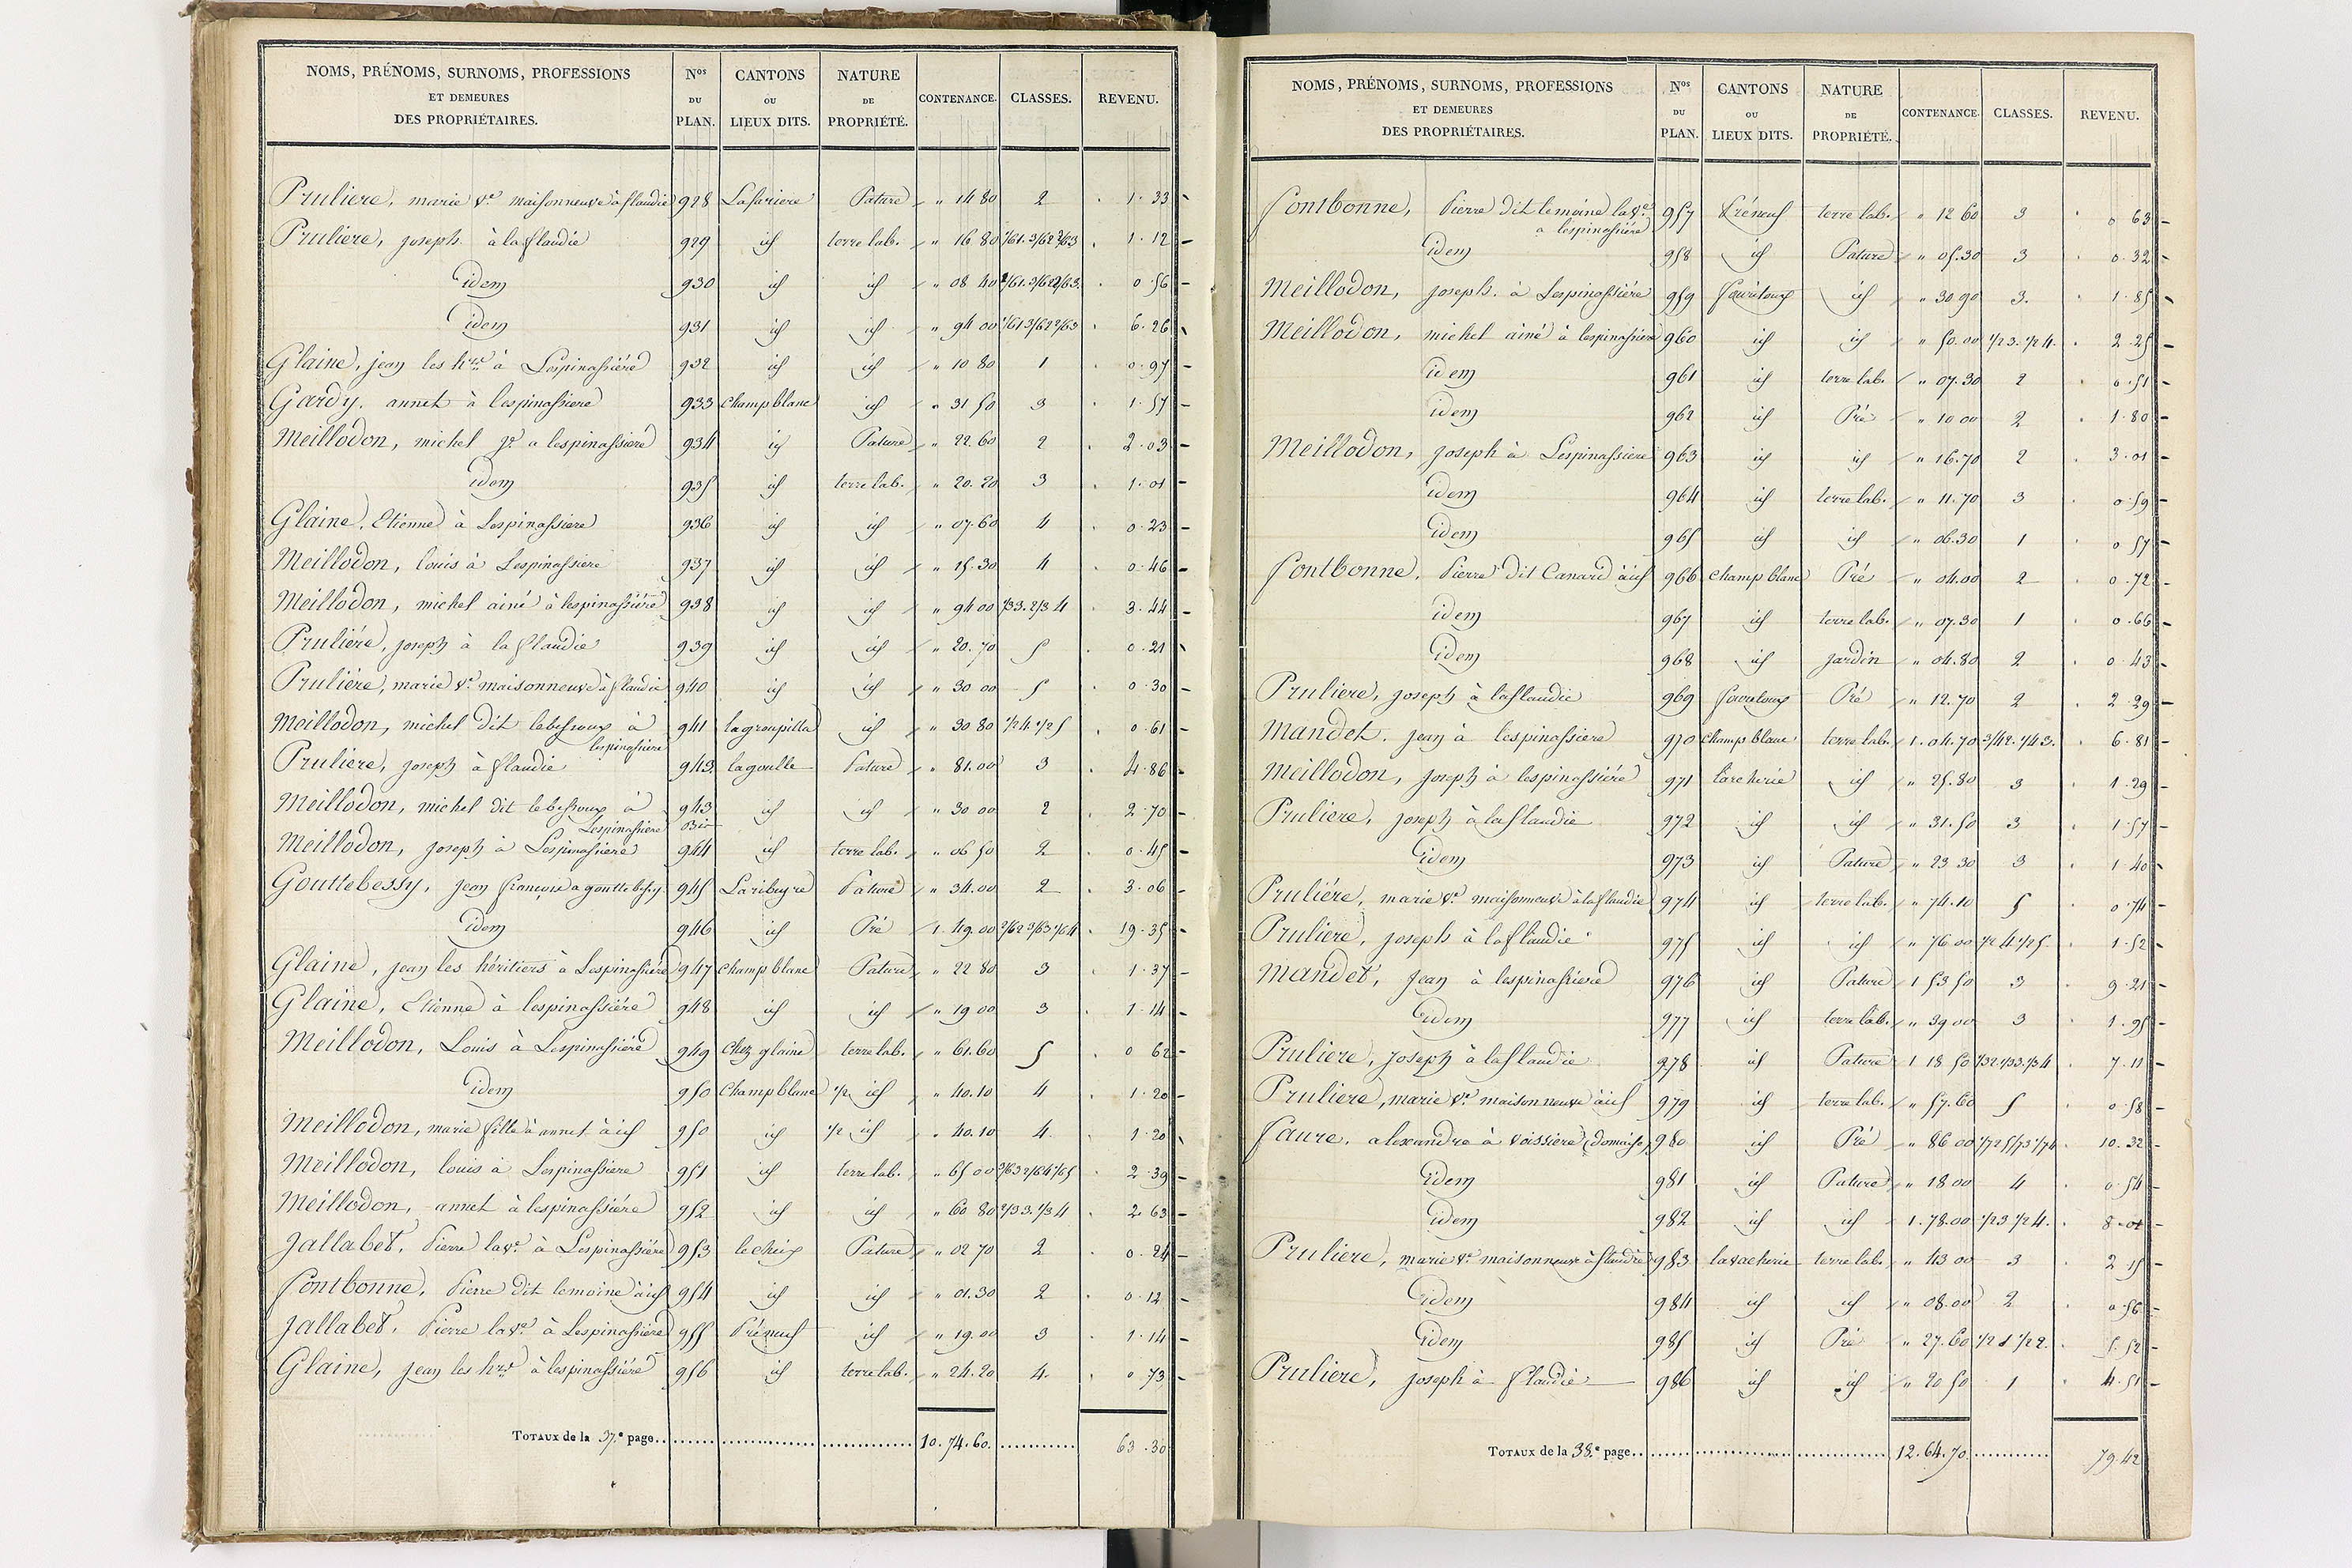 NOMS, PRÉNOMS, SURNOMS, PROFESSIONS ET DEMEURES DES PROPRIÉTAIRES. Nos DU PLAN. CANTONS OU LIEUX DITS. NATURE DE PROPRIÉTÉ. CONTENANCE. CLASSES. REVENU.
Pruliere, marie Ve maisonneuve à flaudie 928 Lafariere Pature " 14 80 2 1. 33
Pruliere, joseph à la flaudie 929 id terre lab. " 16 80 1/6 1. 3/6 2 2/6 3 1. 12
idem 930 id id " 08 40 1/6 1. 3/6 2 2/6 3. 0. 56
idem 931 id id " 94 00 1/6 1 3/6 2 2/6 3 6. 26
Glaine, jean les hers à Lespinassiére 932 id id " 10 80 1 0. 97
Gardy, annet à lespinassiere 933 champ blanc id " 31 50 3 1. 57
Meillodon, michel je a lespinassiere 934 id Pature " 22. 60 2 2. 03
idem 935 id terre lab. " 20. 20 3 1. 01
Glaine, Etienne à Lespinassiere 936 id id " 07. 60 4 0. 23
Meillodon, louis à Lespinassiere 937 id id " 15. 30 4 0. 46
Meillodon, michel ainé à lespinassiére 938 id id " 94 00 1/3 3. 2/3 4 3. 44
Pruliére, joseph à la flaudie 939 id id " 20. 70 5 0. 21
Pruliére, marie Ve maisonneuve à flaudie 940 id id " 30 00 5 0. 30
Meillodon, michel dit lebessoux à 941 lagroupilla id " 30 80 1/2 4. 1/2 5 0. 61
lespinassiere
Pruliere, joseph à flaudie 943 lagoulle Pature " 81. 00 3 4. 86
Meillodon, michel dit lebessoux à 943 id id " 30 00 2 2. 70
Lespinassiere Bis
Meillodon, joseph à Lespinassiere 944 id terre lab. " 06 50 2 0. 45
Gouttebessy, jean françois a gouttebessy 945 Laribeyre Pature " 34. 00 2 3. 06
idem 946 id Pré 1. 49. 00 2/6 2 3/6 3 1/6 4 19. 35
Glaine, jean les héritiers à Lespinassiére 947 champ blanc Pature " 22 80 3 1. 37
Glaine, Etienne à lespinassiére 948 id id " 19 00 3 1. 14
Meillodon, Louis à Lespinassiére 949 Chez glaine terre lab. " 61. 60 5 0 62
idem 950 champ blanc 1/2 id " 40. 10 4 1. 20
Meillodon, marie fille à annet à id 950 id 1/2 id " 40. 10 4. 1. 20
Meillodon, louis à Lespinassiere 951 id terre lab. " 65 00 3/6 3 2/6 4 1/6 5 2 39
Meillodon, annet à lespinassiére 952 id id " 60 80 2/3 3. 1/3 4 2. 63
Jallabet, Pierre la Ve à Lespinassiére 953 lecheix Pature " 02 70 2 0. 24
Fontbonne, Pierre dit lemoine à id 954 id id " 01. 30 2 0. 12
Jallabet, Pierre la Ve à Lespinassiere 955 Préneuf id " 19. 00 3 1. 14
Glaine, jean les hers à lespinassiére 956 id terre lab. " 24. 20 4. 0. 73
TOTAUX de la 37.e page 10. 74. 60. 63. 30
NOMS, PRÉNOMS, SURNOMS, PROFESSIONS ET DEMEURES DES PROPRIÉTAIRES. Nos DU PLAN. CANTONS OU LIEUX DITS. NATURE DE PROPRIÉTÉ. CONTENANCE. CLASSES. REVENU.
Fontbonne, Pierre dit lemoine la Ve 957 Préneuf terre lab. " 12 60 3 0 63
a lespinassiére
idem 958 id Pature " 05. 30 3 0. 32
Meillodon, joseph. à Lespinassiére 959 id " 30 90 3. 1. 85
Meillodon, michel ainé à lespinassiere 960 id id " 50. 00 1/2 3. 1/2 4. 2. 25
idem 961 id terre lab. " 07. 30 2 0. 51
idem 962 id Pré " 10 00 2 1. 80
Meillodon, joseph à Lespinassiere 963 id id " 16. 70 2 3. 01
idem 964 id terre lab. " 11. 70 3 0. 59
idem 965 id id " 06. 30 1 0 57
Fontbonne, Pierre dit Canard à id 966 champ blanc Pré " 04. 00 2 0. 72
idem 967 id terre lab. " 07. 30 1 0. 66
idem 968 id jardin " 04. 80 2 0. 43
Pruliere, joseph à laflaudie 969 Pré " 12. 70 2 2 29
Mandet, jean à lespinassiere 970 champ blanc terre lab. 1. 04. 70 3/4 2. 1/4 3. 6. 81
Meillodon, joseph à lespinassiére 971 id " 25. 80 3 1. 29
Pruliere, joseph à laflaudie 972 id id " 31. 50 3 1. 57
idem 973 id Pature " 23 30 3 1. 40
Pruliére, marie Ve maisonneuve à laflaudie 974 id terre lab. " 74. 10 5 0. 74
Pruliere, joseph à laflaudie 975 id id " 76 00 1/2 4. 1/2 5. 1. 52
Mandet, jean à lespinassiere 976 id Pature 1 53 50 3 9. 21
idem 977 id terre lab. " 39 00 3 1. 95
Pruliere, joseph à laflaudie 978 id Pature 1 18. 50 1/3 2. 1/3 3. 1/3 4 7. 11
Pruliere, marie Ve maisonneuve à id 979 id terre lab. " 57. 60 5 0. 58
Faure, alexandre à Voissiere (domaise) 980 id Pré " 86 00 1/7 2 5/7 3 1/7 4. 10. 32
idem 981 id Pature " 18 00 4 0. 54
idem 982 id id 1. 78. 00 1/2 3 1/2 4. 8. 01
Pruliere, marie Ve maisonneuve à flaudie 983 lavacherie terre lab. " 43 00 3 2 15
idem 984 id id " 08. 00 2 0. 56
idem 985 id Pré " 27. 60 1/2 1 1/2 2. 5. 52
Pruliere, joseph à flaudie 986 id id " 20 50 1 4. 51
TOTAUX de la 38.e page 12. 64. 70. 79. 42